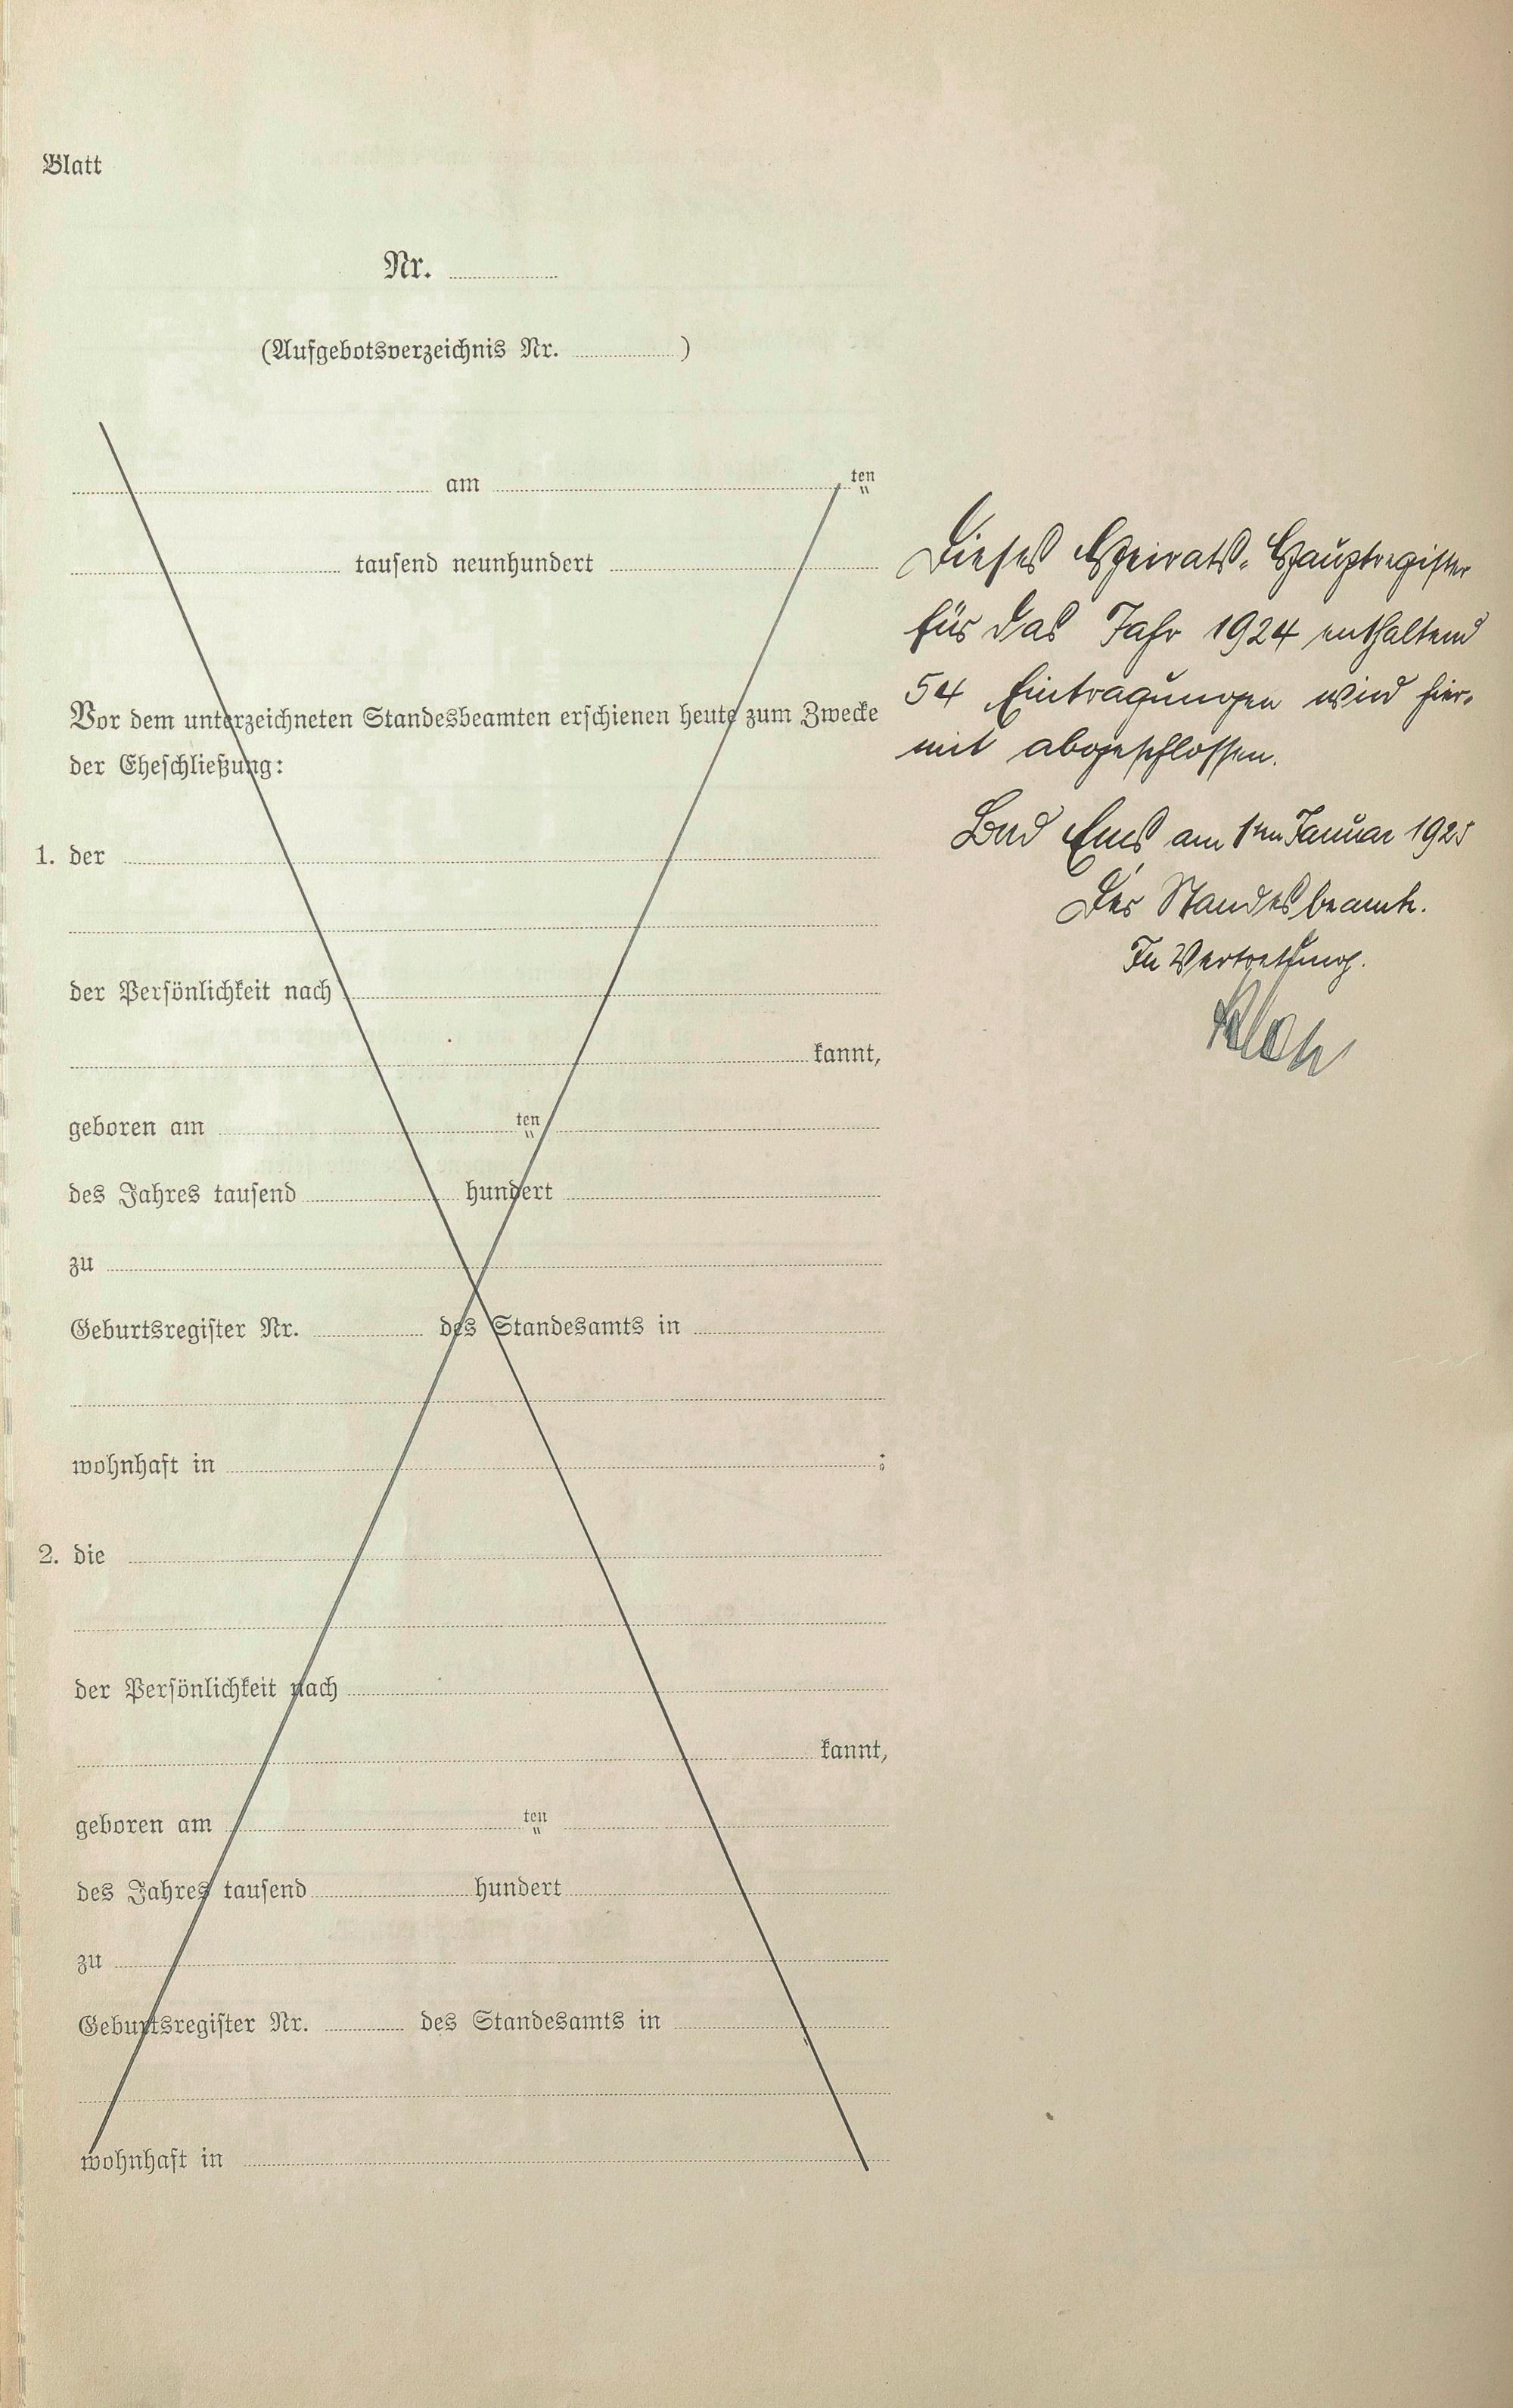 Blatt
Nr.
(Aufgebotsverzeichnis Nr. )
am ten
tausend neunhundert
Vor dem unterzeichneten Standesbeamten erschienen heute zum Zwecke
der Eheschließung:
1. der
der Persönlichkeit nach
kannt,
geboren am ten
des Jahres tausend hundert
zu
Geburtsregister Nr. des Standesamts in
wohnhaft in ;
2. die
der Persönlichkeit nach
kannt,
geboren am ten
des Jahres tausend hundert
zu
Geburtsregister Nr. des Standesamts in
wohnhaft in
Dieses Heirats-Hauptregister
für das Jahr 1924 enthaltend
54 Eintragungen wird hier-
mit abgeschlossen.
Bad Ems am 1ten Januar 1925
Der Standesbeamte.
In Vertretung.